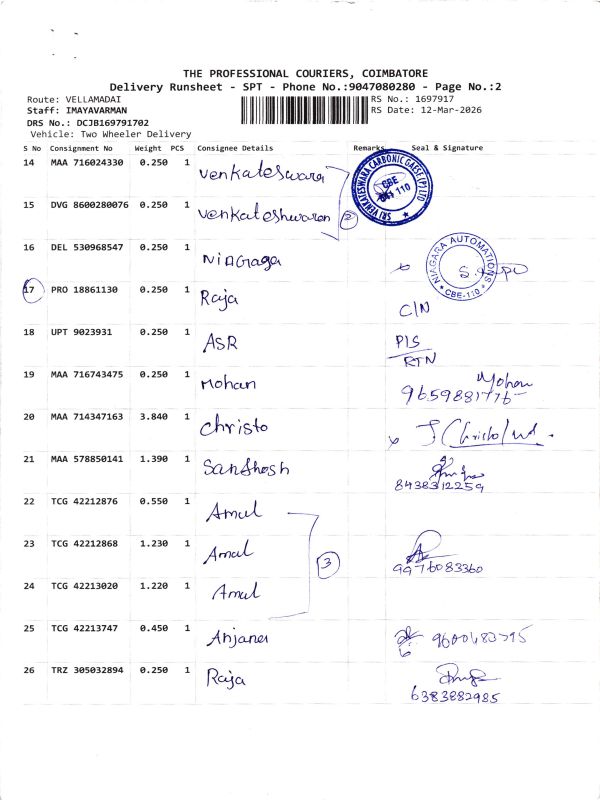 THE PROFESSIONAL COURIERS, COIMBATORE
Delivery Runsheet - SPT - Phone No.:9047080280 - Page No.:2
Route: VELLAMADAI
RS No.: 1697917
Staff: IMAYAVARMAN
RS Date: 12-Mar-2026
DRS No.: DCJB169791702
Vehicle: Two Wheeler Delivery
S No Consignment No Weight PCS Consignee Details Remarks Seal & Signature
14 MAA 716024330 0.250 1 Venkateswara
SRI VENKATESWARA CARBONIC GASES (P) LTD
CBE
110
15 DVG 8600280076 0.250 1 Venkateshwaran 2
16 DEL 530968547 0.250 1 NIAGraga
NIAGARA AUTOMATIONS
CBE-110
17 PRO 18861130 0.250 1 Raja C/N
18 UPT 9023931 0.250 1 ASR P/S
RTN
19 MAA 716743475 0.250 1 Mohan Mohan
20 MAA 714347163 3.840 1 Christo
21 MAA 578850141 1.390 1 Santhosh
8438312259
22 TCG 42212876 0.550 1 Amul
23 TCG 42212868 1.230 1 Amul 3
9976083360
24 TCG 42213020 1.220 1 Amul
25 TCG 42213747 0.450 1 Anjaner
26 TRZ 305032894 0.250 1 Raja
6383882985